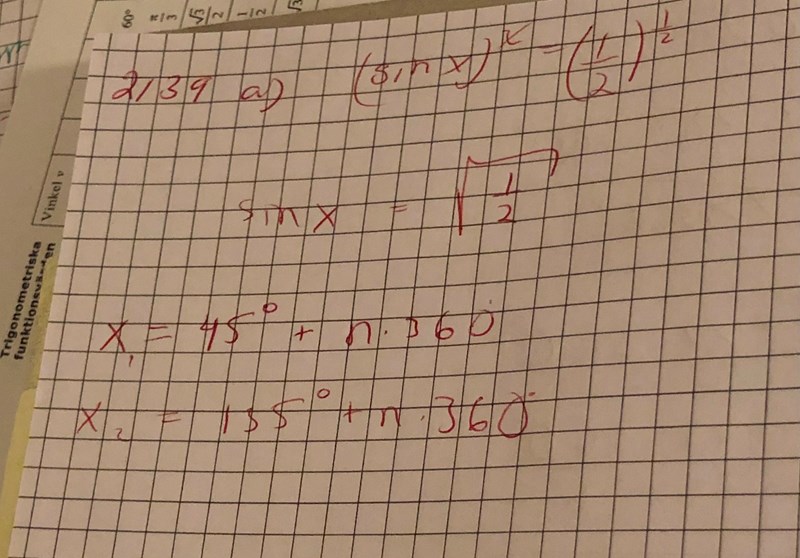 60°
π/3
√3/2
-1/2
√3
Vinkel v
Trigonometriska
2139 a) (sin x)^k = (1/2)^1/2
sin x = √1/2
x₁ = 45° + n·360°
x₂ = 135° + n·360°